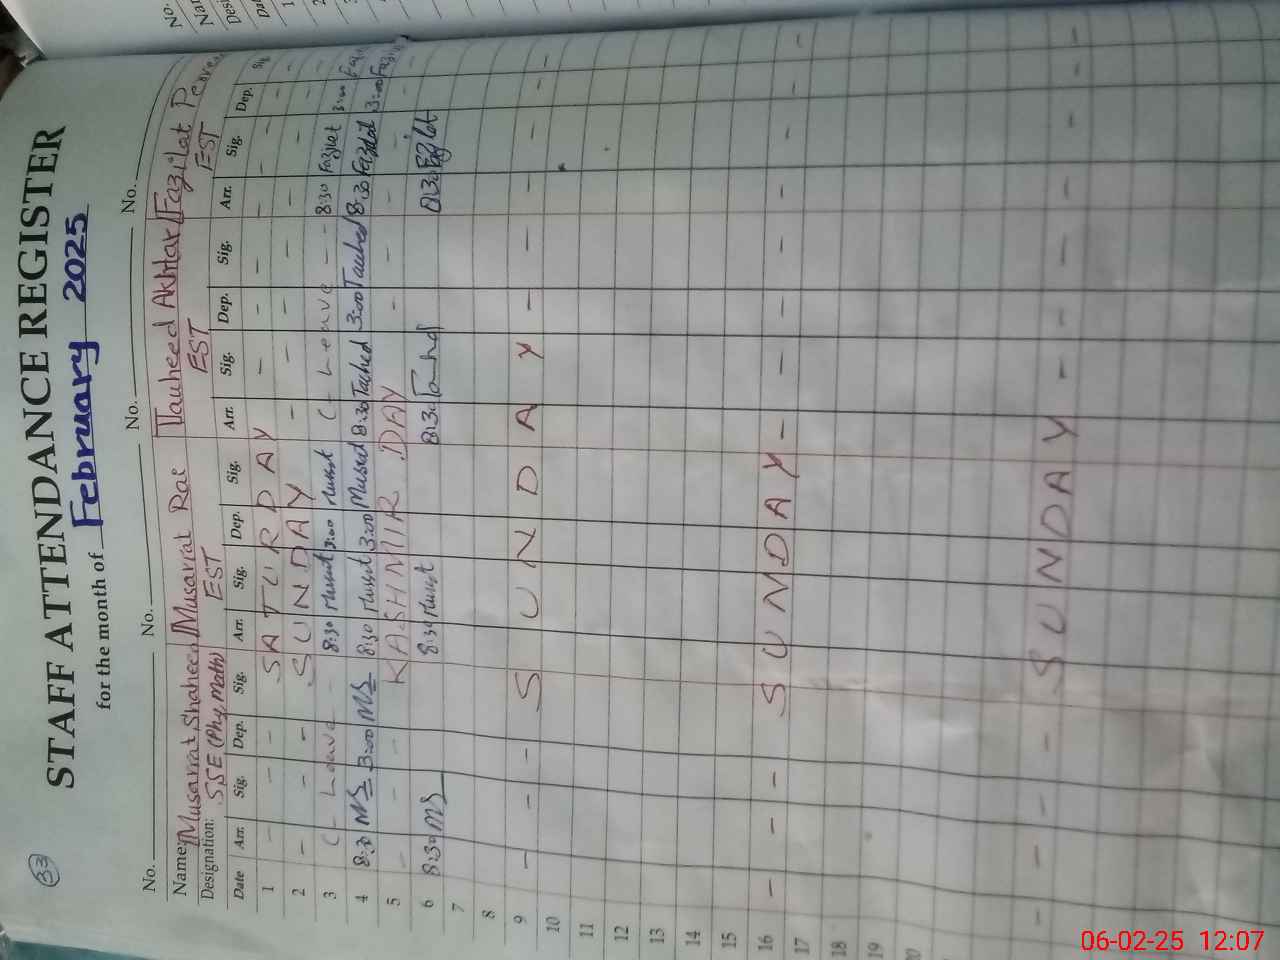 33
STAFF ATTENDANCE REGISTER
for the month of February 2025
No. No. No. No.
Name: Musarrat Shaheen Musarrat Rae Tauheed Akhtar Fazilat
Designation: SSE (Phy, Math) EST EST EST
Date Arr. Sig. Dep. Sig. Arr. Sig. Dep. Sig. Arr. Sig. Dep. Sig. Arr. Sig. Dep. Sig.
1 - - - SATURDAY - - - - - - -
2 - - - SUNDAY - - - - - - -
3 C - Leave - 8:30 Musrt 3:00 Musrt C - Leave - - 8:30 Fazilet 3:00
4 8:30 MS 3:00 MS 8:30 Musrt 3:00 Musrat 8:30 Tauhed 3:00 Tauhed 8:30 Fazilat 3:00
5 - - - KASHMIR DAY - - - -
6 8:30 MS 8:30 Musrt 8:30 Tauhed 8:30 Fazilat
7
8
9 - - - SUNDAY - - - - - -
10
11
12
13
14
15
16 - - - SUNDAY - - - - - -
17
18
19
20
- - - - SUNDAY - - - - - -
No.
06-02-25 12:07